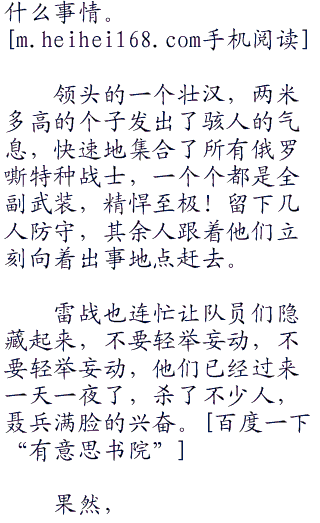 什么事情。
[m.heihei168.com手机阅读]
领头的一个壮汉，两米
多高的个子发出了骇人的气
息，快速地集合了所有俄罗
嘶特种战士，一个个都是全
副武装，精悍至极！留下几
人防守，其余人跟着他们立
刻向着出事地点赶去。
雷战也连忙让队员们隐
藏起来，不要轻举妄动，不
要轻举妄动，他们已经过来
一天一夜了，杀了不少人，
聂兵满脸的兴奋。[百度一下
“有意思书院”]
果然，